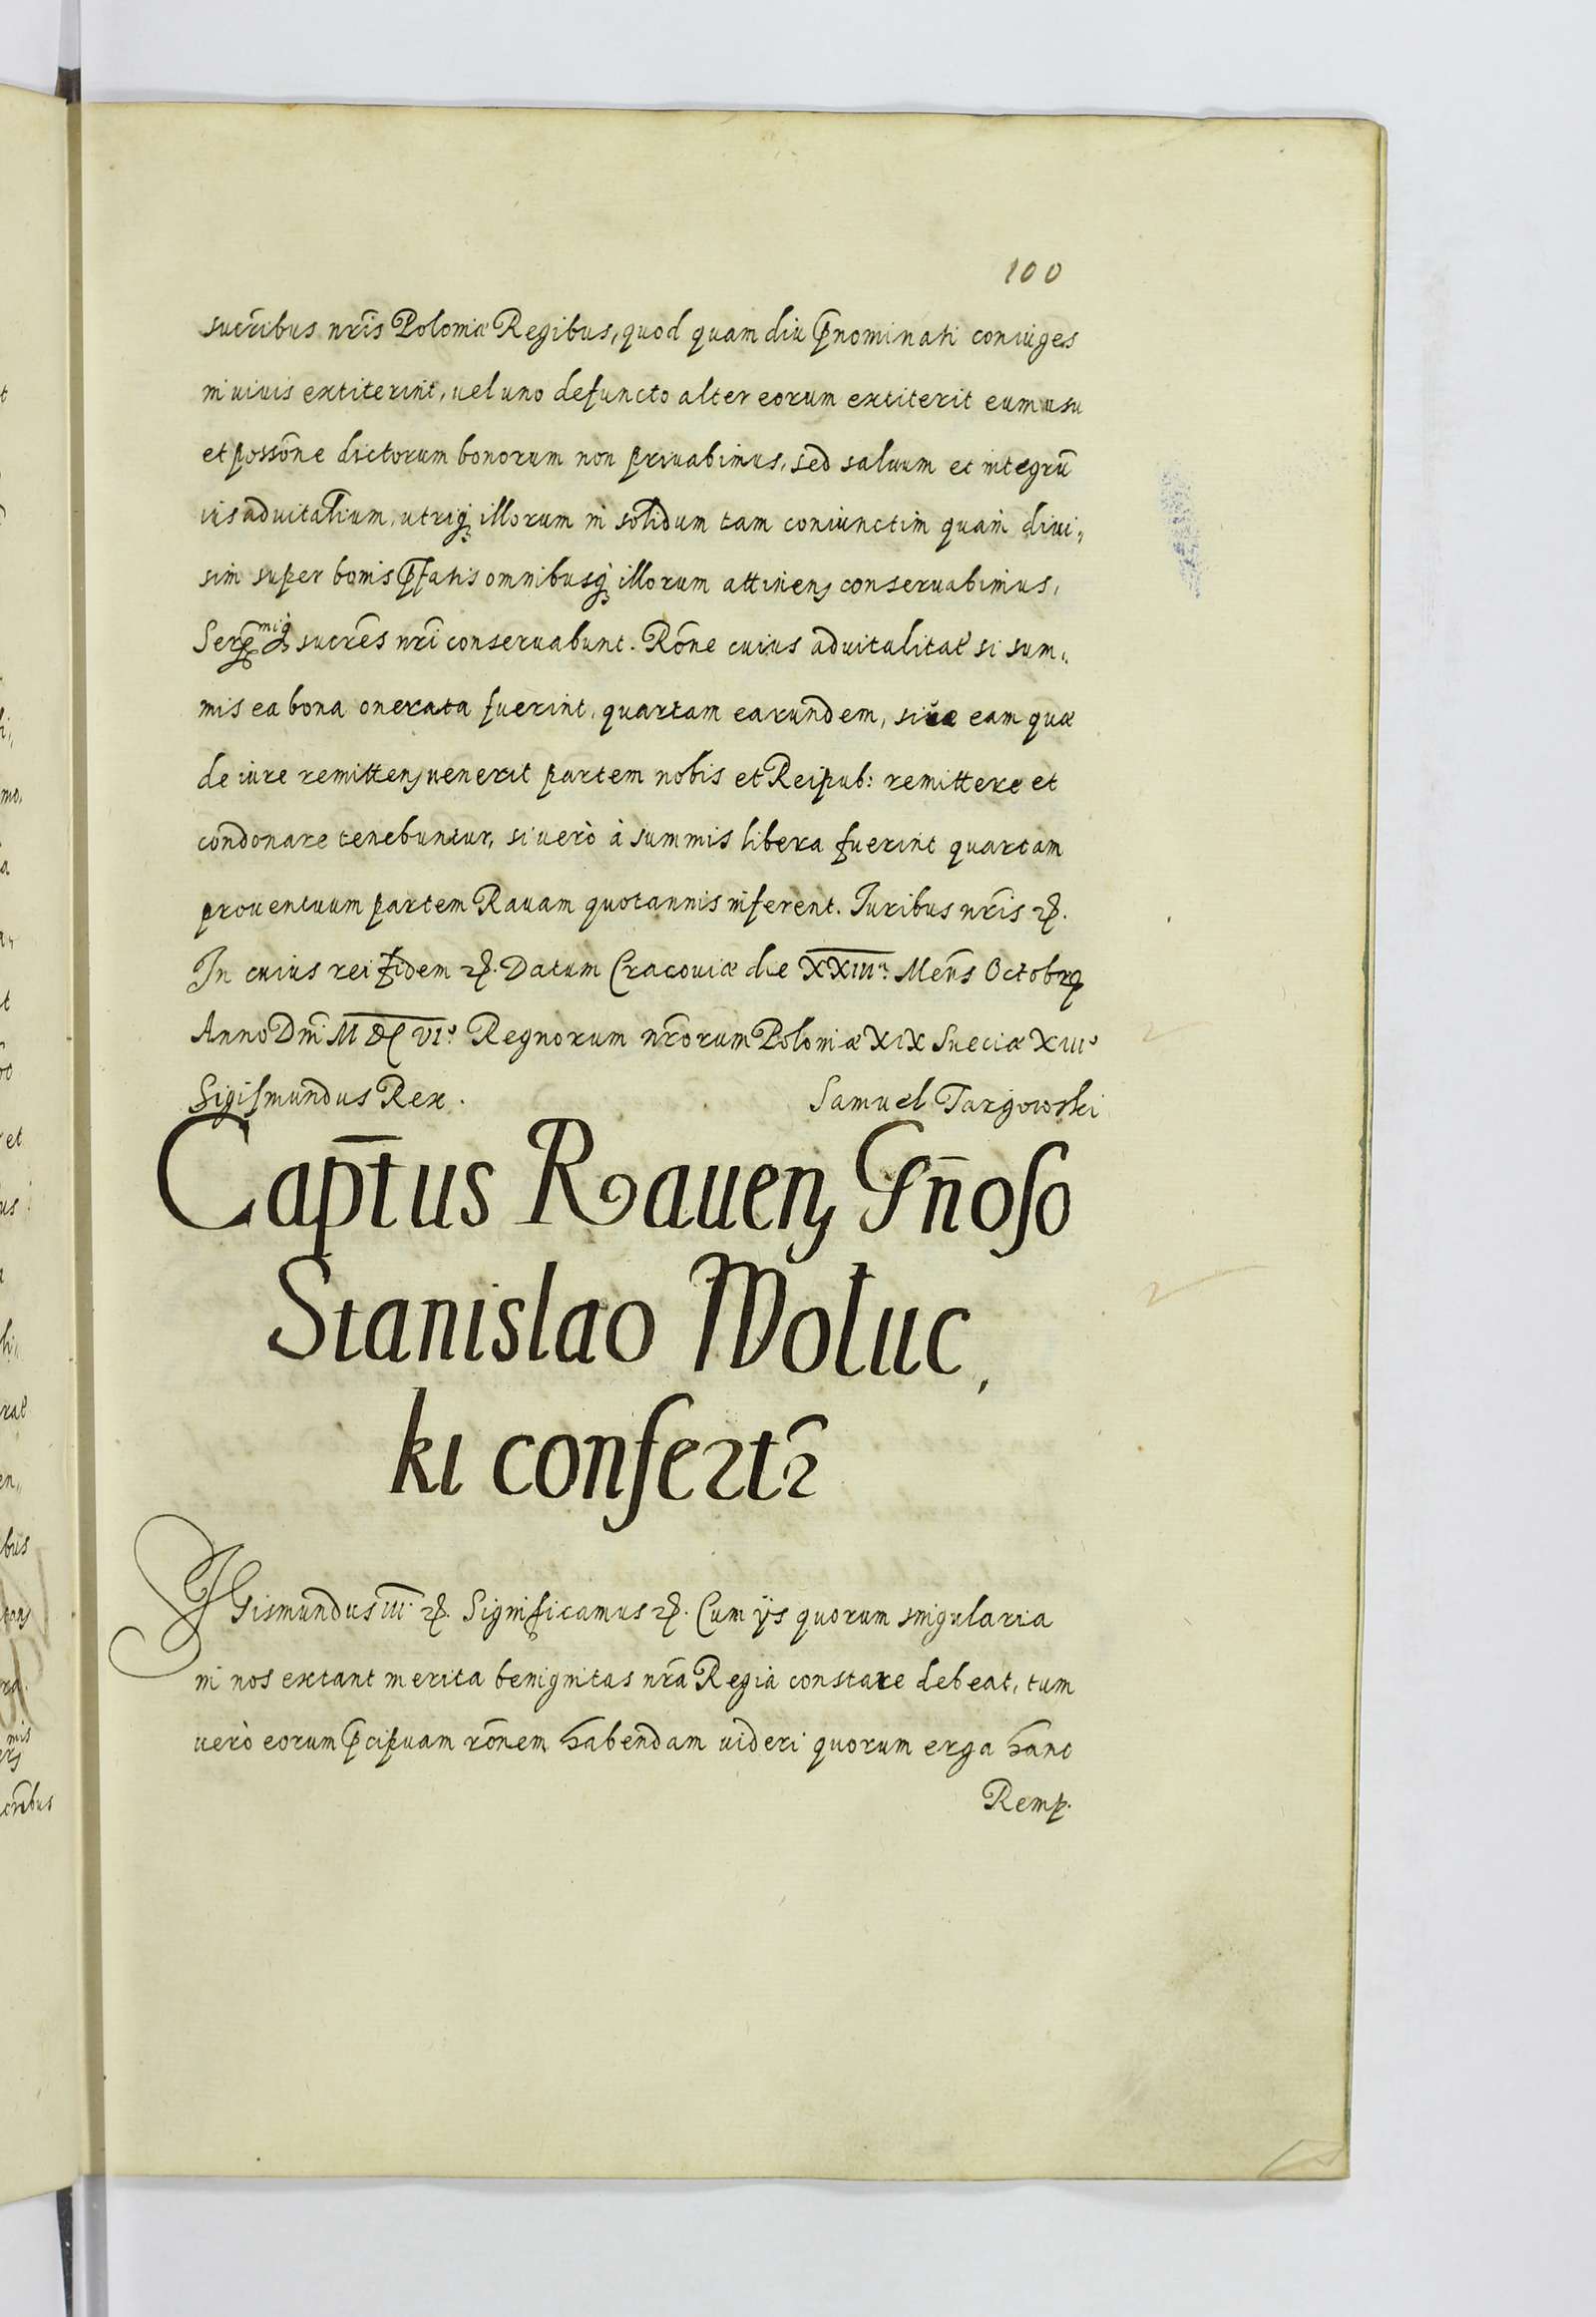 100
sucr̃ibus nr̃is Poloniæ Regibus, quod quam diu p̃nominati coniuges
in uiuis extiterint, uel uno defuncto alter eorum extiterit eum usu
et possõne dictorum bonorum non priuabimus, sed saluum et integrũ
ius aduitalium, utriq; illorum in solidum tam coniunctim quam diui„
sim super bonis p̃fatis omnibusq; illorum attinen; conseruabimus,
sucr̃es nr̃i conseruabunt. Rõne cuius aduitalitat̃ si sum„
mis ea bona onerata fuerint, quartam earundem, siue eam quæ
de iure remitten; uenerit partem nobis et Reipub: remittere et
condonare tenebuntur, si uerò à summis libera fuerint quartam
prouentuum partem Rauam quotannis inferent. Iuribus nr̃is ꝛc.
In cuius rei fidem ꝛc. Datum Cracouiæ die XXIII.a Mens̃ Octobrꝭ
Anno Dnĩ M DC VI.o Regnorum nr̃orum Poloniæ XIX Sueciæ XIIIo
Sigismundus Rex. Samuel Targowski
Capt̃us Rauen; Gñoso
Stanislao Wołuc,
ki confertꝛ
SIgismundus III. ꝛc. Significamus ꝛc. Cum ijs quorum singularia
in nos extant merita benignitas nr̃a Regia constare debeat, tum
uerò eorum p̃cipuam rõnem habendam uideri quorum erga hanc
Remp.